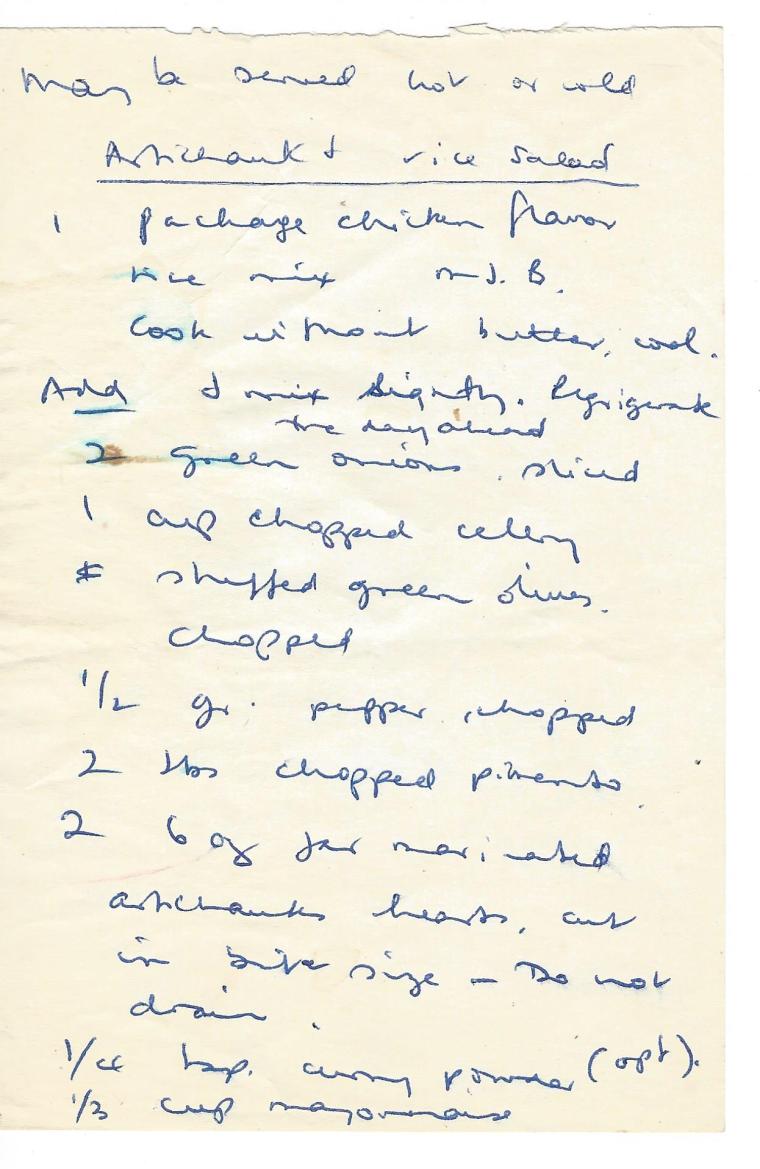 May be served hot or cold
Artichauk & rice Salad
1 package chicken flavor
rice mix M.J.B.
Cook without butter, cool.
Add & mix lightly. Refrigerate
the day ahead
2 green onions, sliced
1 cup chopped celery
* stuffed green olives.
chopped
1/2 gr. pepper, chopped
2 tbs chopped pimento.
2 6 oz jar marinated
artichauks hearts, cut
in bite size - Do not
drain.
1/4 tsp. curry powder (opt).
1/3 cup mayonnaise